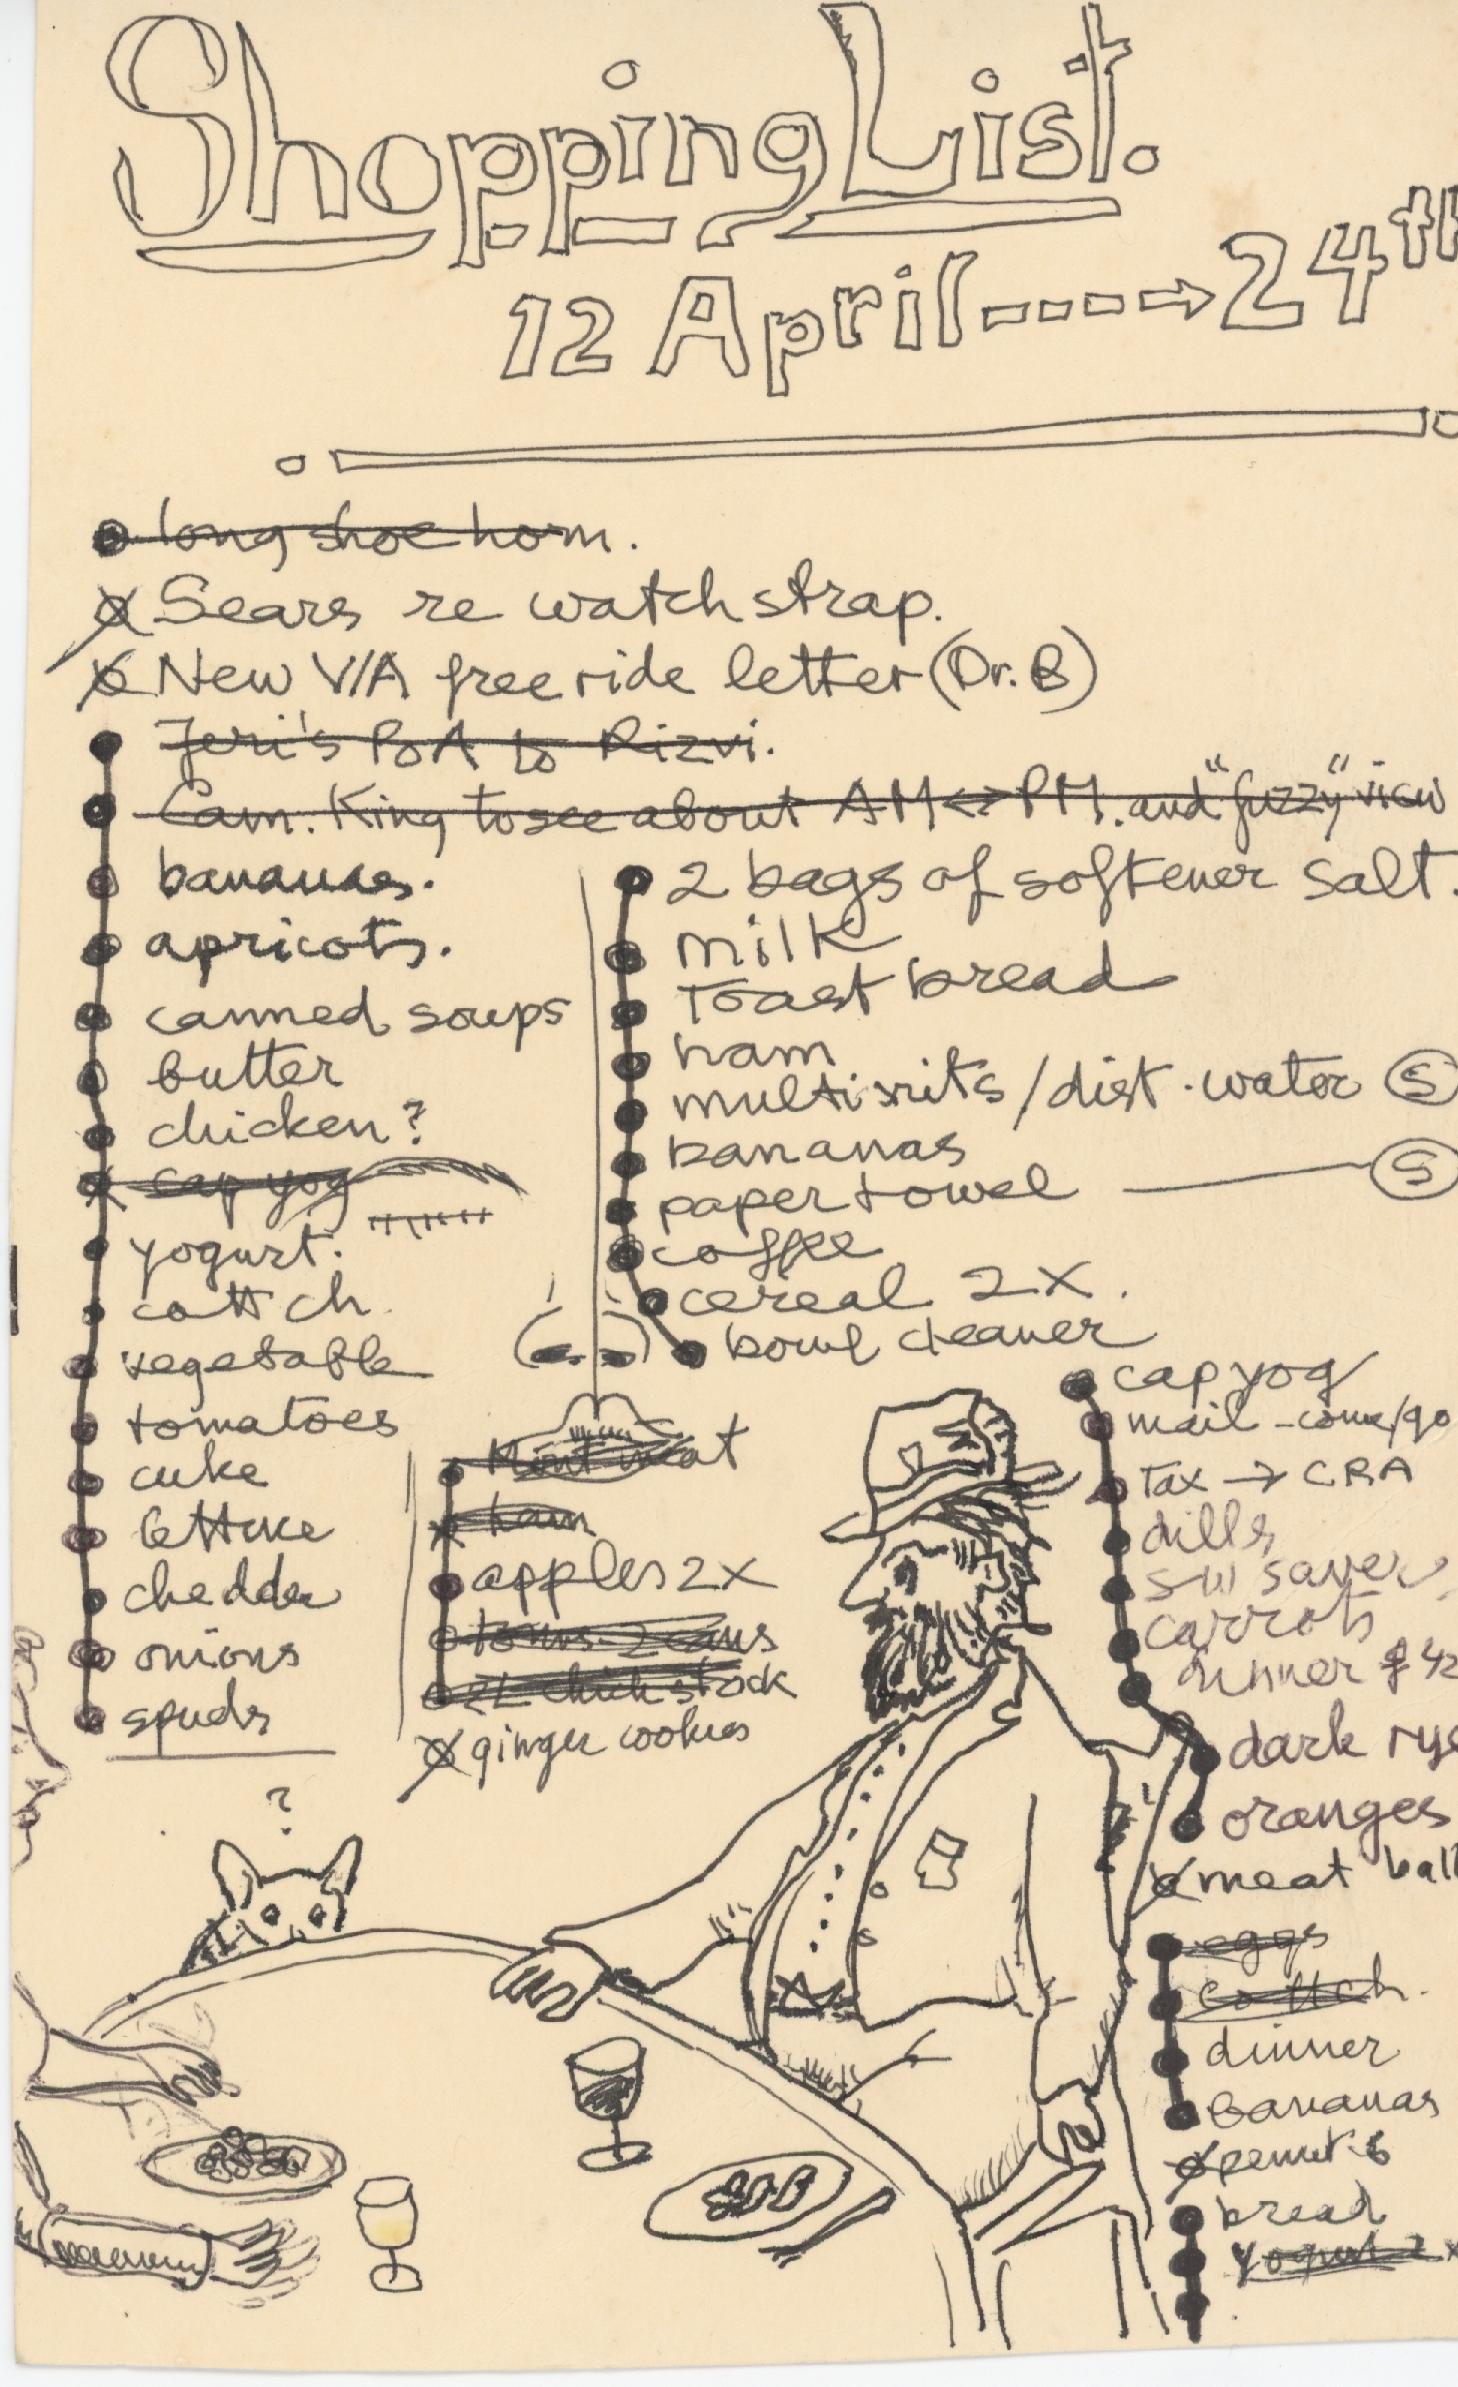 Shopping List.
12 April----→24th
long shoe horn.
Sears re watch strap.
New V/A free ride letter (Dr. B)
Jeri's PoA to Rizvi.
Cam. King to see about AM↔PM. and "fuzzy" view
bananas.
apricots.
canned soups
butter
chicken?
cap yog
yogurt.
cott ch.
vegetable
tomatoes
cuke
lettuce
chedder
onions
spuds
2 bags of softener salt.
milk
Toast bread
ham
multivits/dist. water (S)
bananas
paper towel — (S)
coffee
cereal 2x.
bowl cleaner
meat
ham
apples 2x
toms-2 cans
2L chick stock
ginger cookies
cap yog
mail -come/go
Tax → CRA
dills
saver
carrots
dinner
dark rye
oranges
meat ball
eggs
cott ch.
dinner
Bananas
bread
yogurt 2x
?